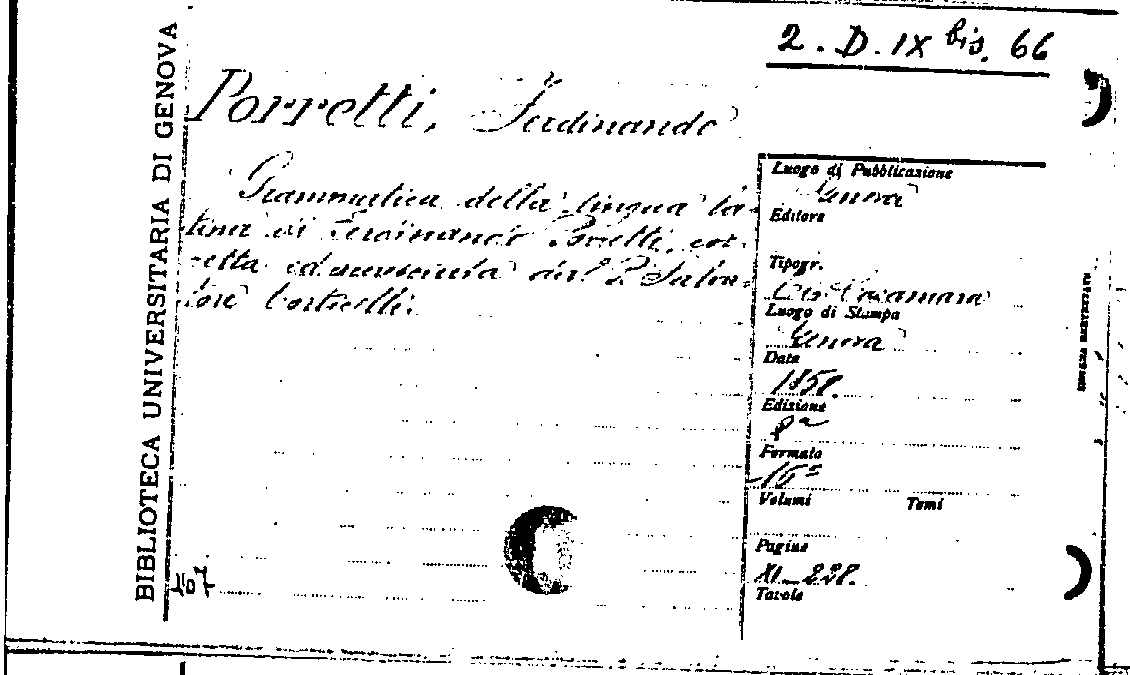 2. D. IX bis. 66
BIBLIOTECA UNIVERSITARIA DI GENOVA
Porretti, Ferdinando
Grammatica della lingua la-
tina di Ferdinando Porretti, cor-
retta ed accresciuta dal P. Salva-
tore Corticelli.
Luogo di Pubblicazione
Genova
Editore
Tipogr.
Casamara
Luogo di Stampa
Genova
Data
Edizione
8ª
Formato
16º
Volumi Tomi
Pagine
Tavole
407